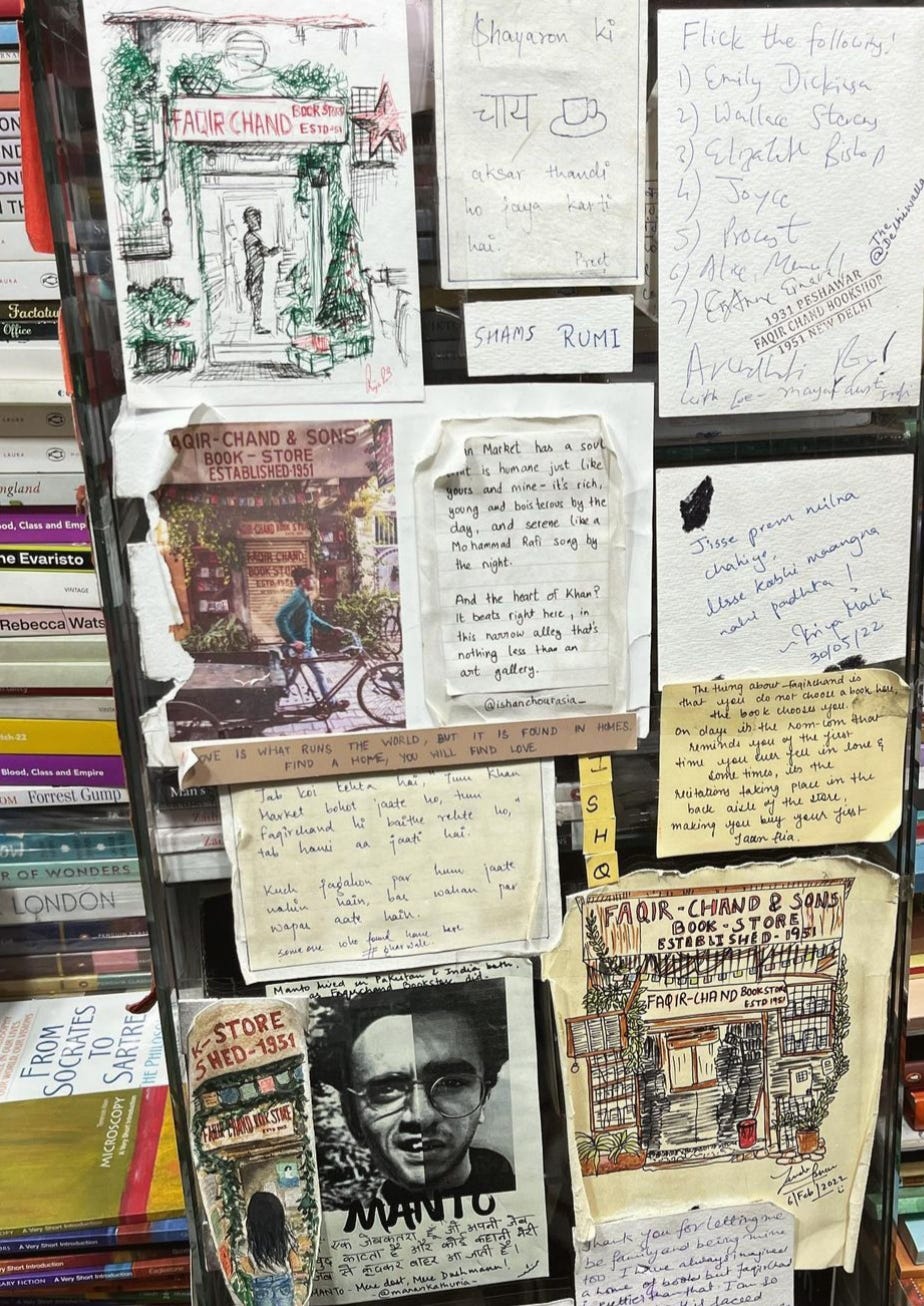 FAQIR CHAND BOOK STORE
ESTD-51
Shayaron ki
चाय
aksar thandi
ho jaya karti
hai.
Preet
SHAMS RUMI
Flick the following!
1) Emily Dickinson
2) Wallace Stevens
3) Elizabeth Bishop
4) Joyce
5) Proust
6) Alice
7)
The
@Delhiwalla
1931 PESHAWAR
FAQIR CHAND BOOKSHOP
1951 NEW DELHI
Arundhati Roy!
with love -
AQIR-CHAND & SONS
BOOK-STORE
ESTABLISHED-1951
FAQIR-CHAND
BOOK-STORE
in Market has a soul
that is humane just like
yours and mine- it's rich,
young and boisterous by the
day, and serene like a
Mohammad Rafi song by
the night.
And the heart of Khan?
It beats right here, in
this narrow alley that's
nothing less than an
art gallery.
@ishanchourasia_
Jisse prem milna
chahiye,
Usse kabhi maangna
nahi padhta!
~Priya Malik
30/05/22
OVE IS WHAT RUNS THE WORLD, BUT IT IS FOUND IN HOMES.
FIND A HOME, YOU WILL FIND LOVE
The thing about Faqirchand is
that you do not choose a book here,
the book chooses you.
On days it the rom-com that
reminds you of the first
time you ever fell in love &
some times, its the
recitations taking place in the
back aisle of the store,
making you buy your first
Jaun Elia.
I
S
H
Q
Jab koi kehta hai, "Tum Khan
Market bohot jaate ho, tum
Faqirchand hi baithe rehte ho,"
tab hansi aa jaati hai.
Kuch jagahon par hum jaate
nahin hain, bas wahan par
wapas aate hain.
someone who found home here
#gharwale.
Manto lived in Pakistan & India both.
as Faqirchand Bookstore did.
MANTO
एक जेबकतरा है जो अपनी जेब
खुद काटता है और कोई कहानी मेरी
जेब से कूदकर बाहर आ जाती है!
MANTO - Mere dost, Mere Dushmann!
K-STORE
SHED-1951
FAQIR CHAND BOOK STORE
FAQIR-CHAND & SONS
BOOK-STORE
ESTABLISHED-1951
FAQIR-CHAND BOOKSTORE
ESTD 1951
6/Feb/2022
Thank you for letting me
be family and being mine
too. I have always imagined
a home of books but faqirchand
is prettier than that. I am so
Factotum
Office
LAURA
LAURA
ngland
ood, Class and Emp
ne Evaristo
VINTAGE
Rebecca Wats
tch-22
Blood, Class and Empire
OM Forrest Gump
Man's
R OF WONDERS
LONDON
FROM
SOCRATES
TO
SARTRE
THE PHILOSO
MICROSCOPY
A Very Short Introduction
A Very Short Introduction
A Very Short Introduction
RARY FICTION A Very Short Introduction